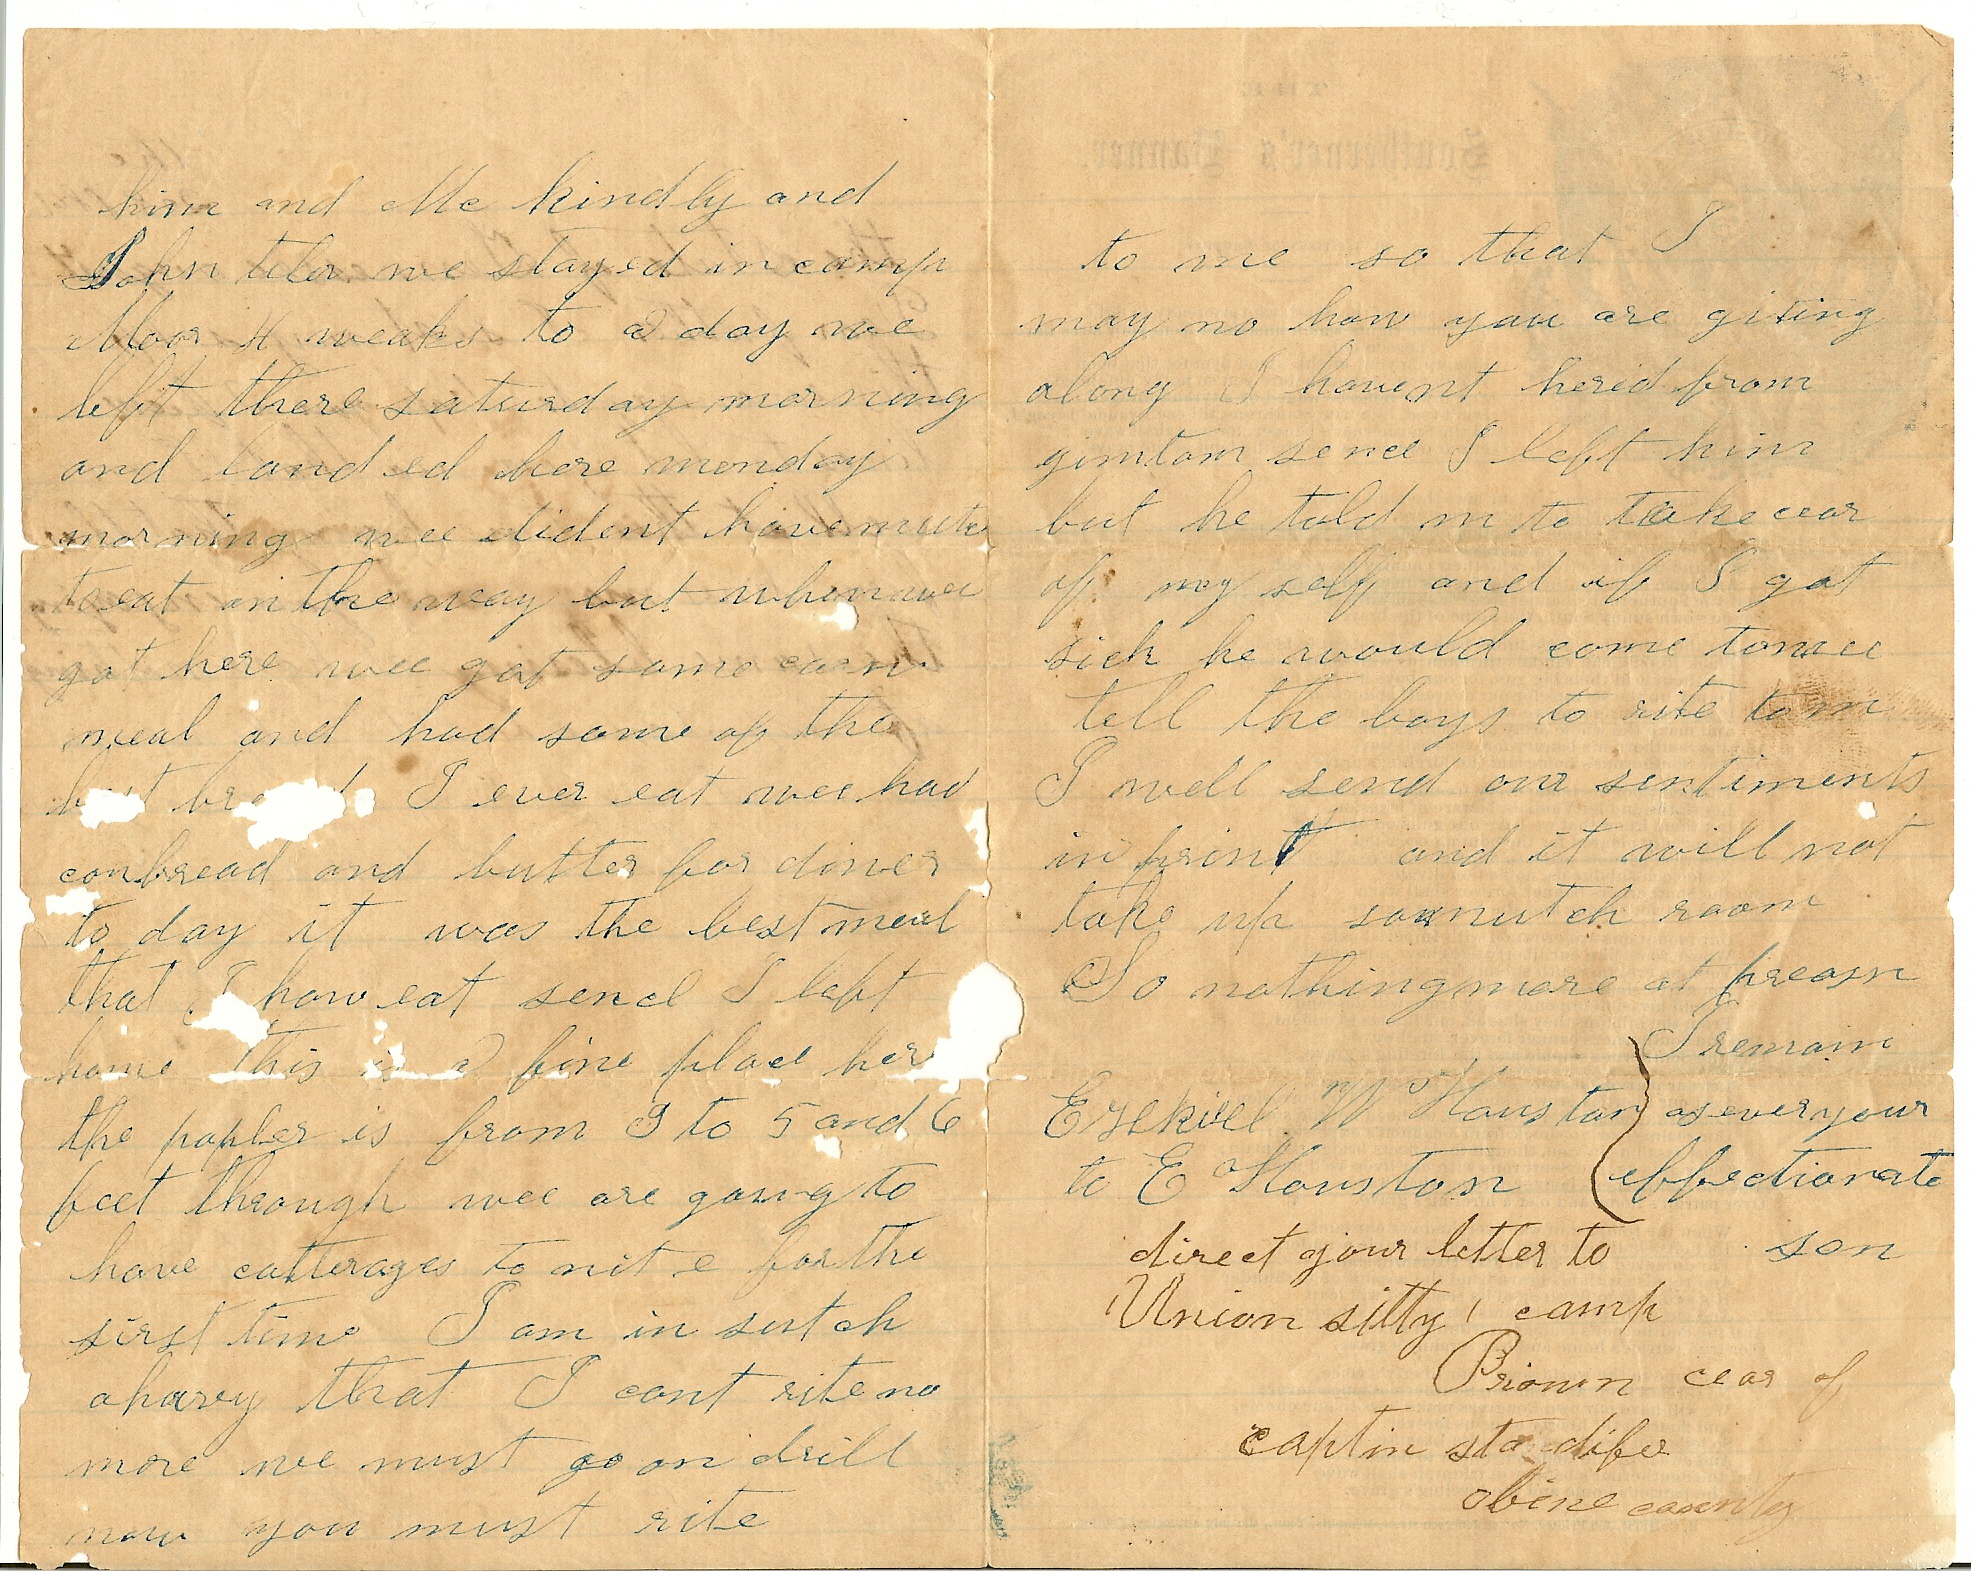 him and Me kindly and
John tilor we stayed in camp
Moor 4 weaks to a day we
left there saturday morning
and landed here monday
morning wee dident have mutch
to eat on the way but when wee
got here wee got some corn
meal and had some of the
best bread I ever eat wee had
conbread and butter for diner
to day it was the best meal
that I hav eat sence I left
home this is a fine place her
the popler is from 3 to 5 and 6
feet through wee are going to
have catterages to nit e for the
first time I am in sutch
a harey that I cant rite no
more we must go on drill
now you must rite
to me so that I
may no how you are giting
along I havent herid from
gimtom sence I left him
but he told m to take cear
of my self and if I got
sick he would come to mee
tell the boys to rite to m
I well send our sentiments
in print and it will not
take up so mutch room
So nothing more at preasn
I remain
Ezekiel W Houston as ever your
to E Houston effectionate
direct your letter to son
Union sitty camp
Brown cear of
captin standifer
obine county
THE
Southerner's Banner.